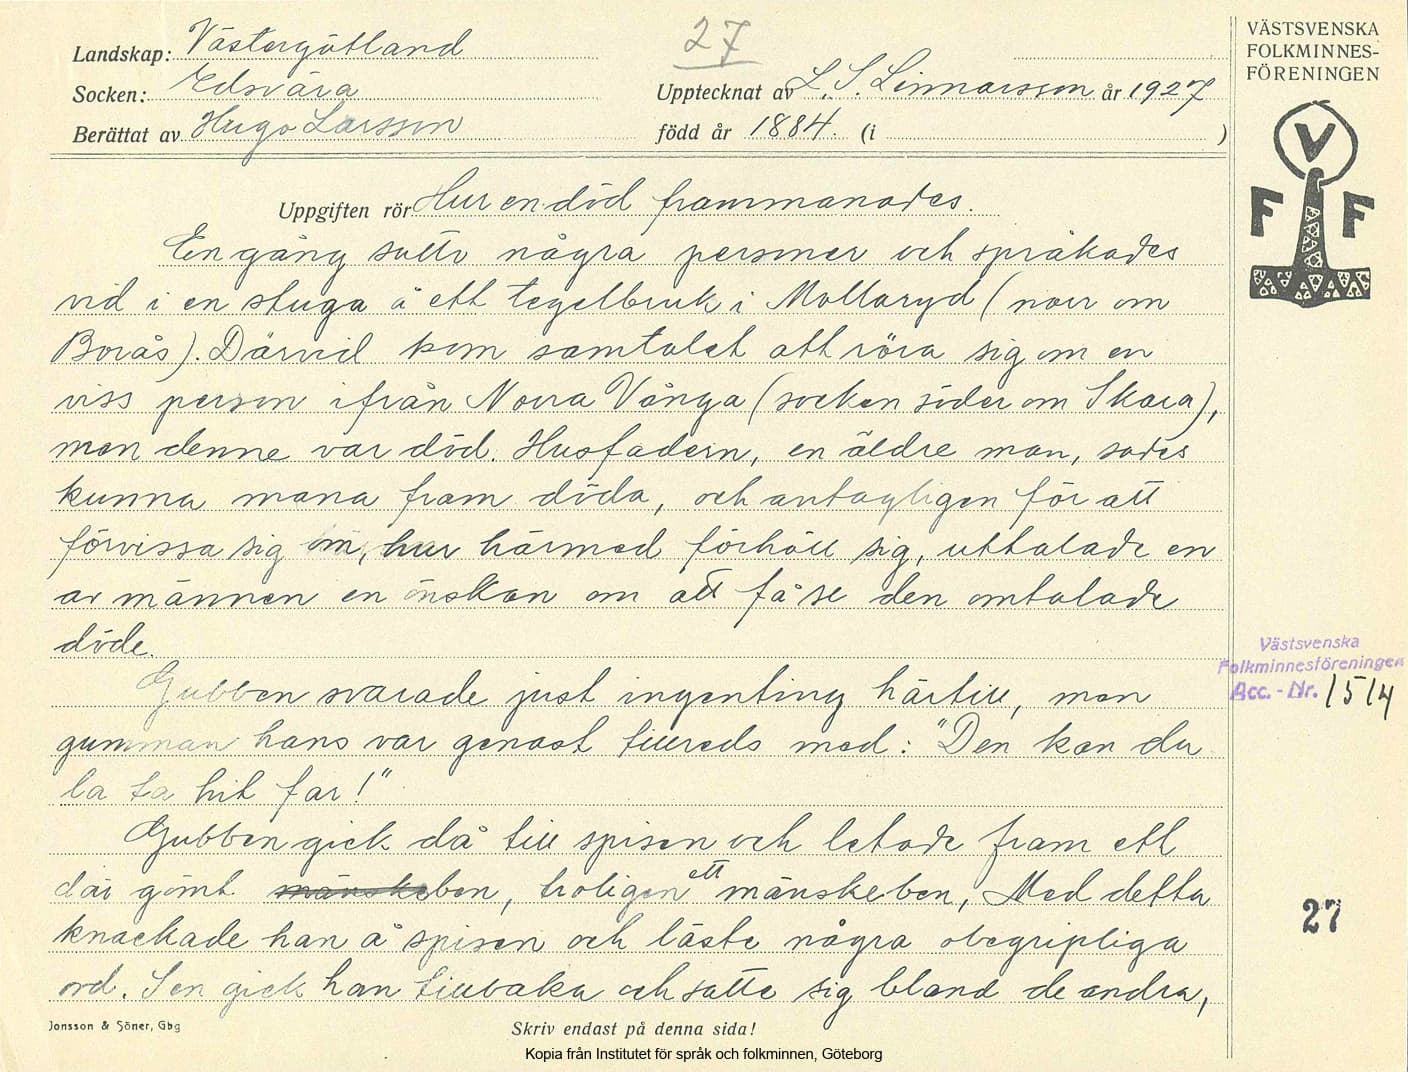 27
Landskap: Västergötland
Socken: Edsvära
Upptecknat av L. S. Linnarsson år 1927
Berättat av Hugo Larsson
född år 1884. (i )
Uppgiften rör Hur en död frammanades.
En gång sutto några personer och språkades
vid i en stuga å ett tegelbruk i Mollaryd (norr om
Borås). Därvid kom samtalet att röra sig om en
viss person ifrån Norra Vånga (socken söder om Skara),
men denne var död. Husfadern, en äldre man, sades
kunna mana fram döda, och antagligen för att
förvissa sig om, hur härmed förhöll sig, uttalade en
av männen en önskan om att få se den omtalade
döde.
Gubben svarade just ingenting härtill, men
gumman hans var genast tillreds med: "Den kan du
la ta hit far!"
Gubben gick då till spisen och letade fram ett
där gömt mänskeben, troligen ett mänskeben, Med detta
knackade han å spisen och läste några obegripliga
ord. Sen gick han tillbaka och satte sig bland de andra,
Jonsson & Söner, Gbg
Skriv endast på denna sida!
Kopia från Institutet för språk och folkminnen, Göteborg
VÄSTSVENSKA
FOLKMINNES-
FÖRENINGEN
V
F F
Västsvenska
Folkminnesföreningen
Acc.-Nr. 1514
27